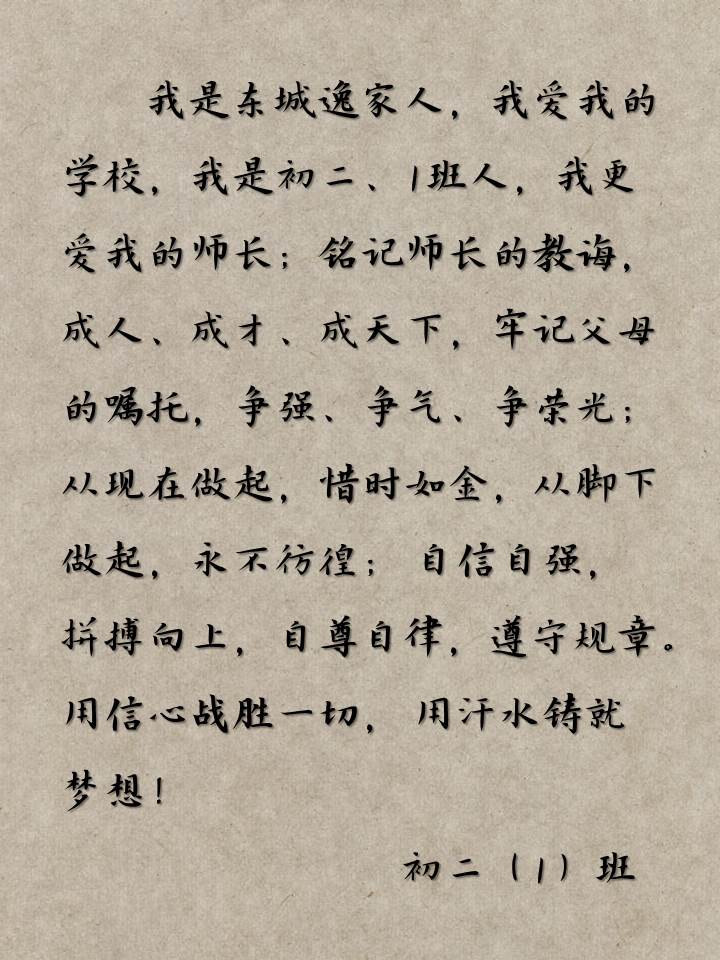 我是东城逸家人，我爱我的
学校，我是初二、1班人，我更
爱我的师长；铭记师长的教诲，
成人、成才、成天下，牢记父母
的嘱托，争强、争气、争荣光；
从现在做起，惜时如金，从脚下
做起，永不彷徨； 自信自强，
拼搏向上，自尊自律，遵守规章。
用信心战胜一切， 用汗水铸就
梦想！
初二（1）班